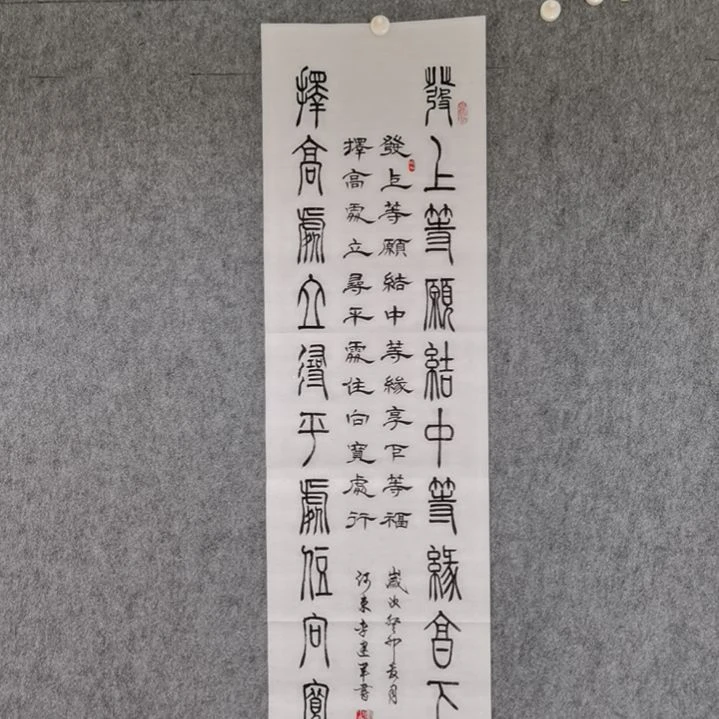 發上等願結中等緣享下
發上等願結中等緣享下等福
歲次癸卯
擇高處立尋平處住向寬處行
河東李建軍書
擇高處立尋平處住向寬